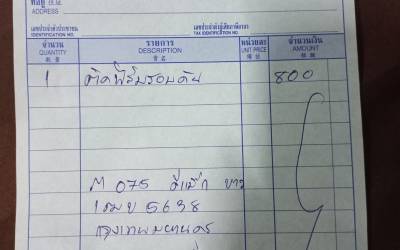 ที่อยู่
ADDRESS
เลขประจำตัวประชาชน เลขประจำตัวผู้เสียภาษีอากร
IDENTIFICATION NO. TAX IDENTIFICATION NO.
จำนวน รายการ หน่วยละ จำนวนเงิน
QUANTITY DESCRIPTION UNIT PRICE AMOUNT
1 ติดฟิล์มรอบคัน 800
M 075 ดีแม็ก ขาว
1 ฒม 5638
กรุงเทพมหานคร